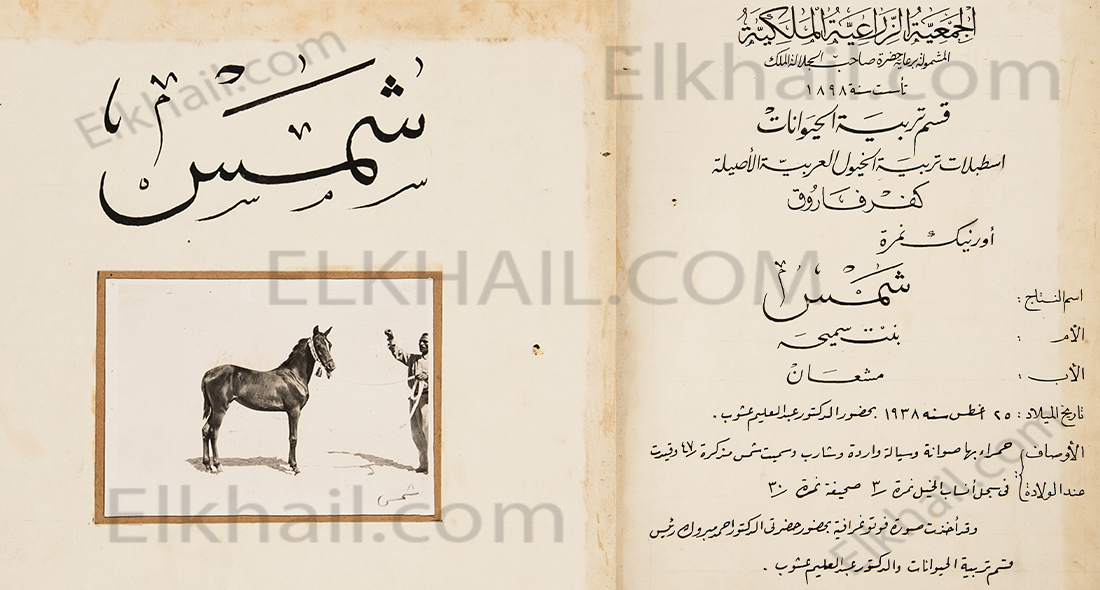 شمس
شمس
الجمعية الزراعية الملكية
المشمولة برعاية حضرة صاحب الجلالة الملك
تأسست سنة ١٨٩٨
قسم تربية الحيوانات
اسطبلات تربية الخيول العربية الأصيلة
كفر فاروق
أورنيك نمرة
اسم النتاج : شمس
الأم : بنت سميحه
الأب : مشعان
تاريخ الميلاد : ٢٥ غطس سنه ١٩٣٨ بحضور الدكتور عبد العليم عشوب .
الأوصاف حمراء بها صوانة وسيالة واردة وشارب وسميت شمس مذكرة وقيدت
عند الولادة : فى سجل أنساب الخيل نمرة ٣ صحيفة نمرة ٣٠
وقد أخذت صورة فوتوغرافية بحضور حضرتى الدكتور احمد مبروك رئيس
قسم تربية الحيوانات والدكتور عبد العليم عشوب .
Elkhail.com
Elkhail.com
ELKHAIL.COM
Elkhail.com
Elkhail.com